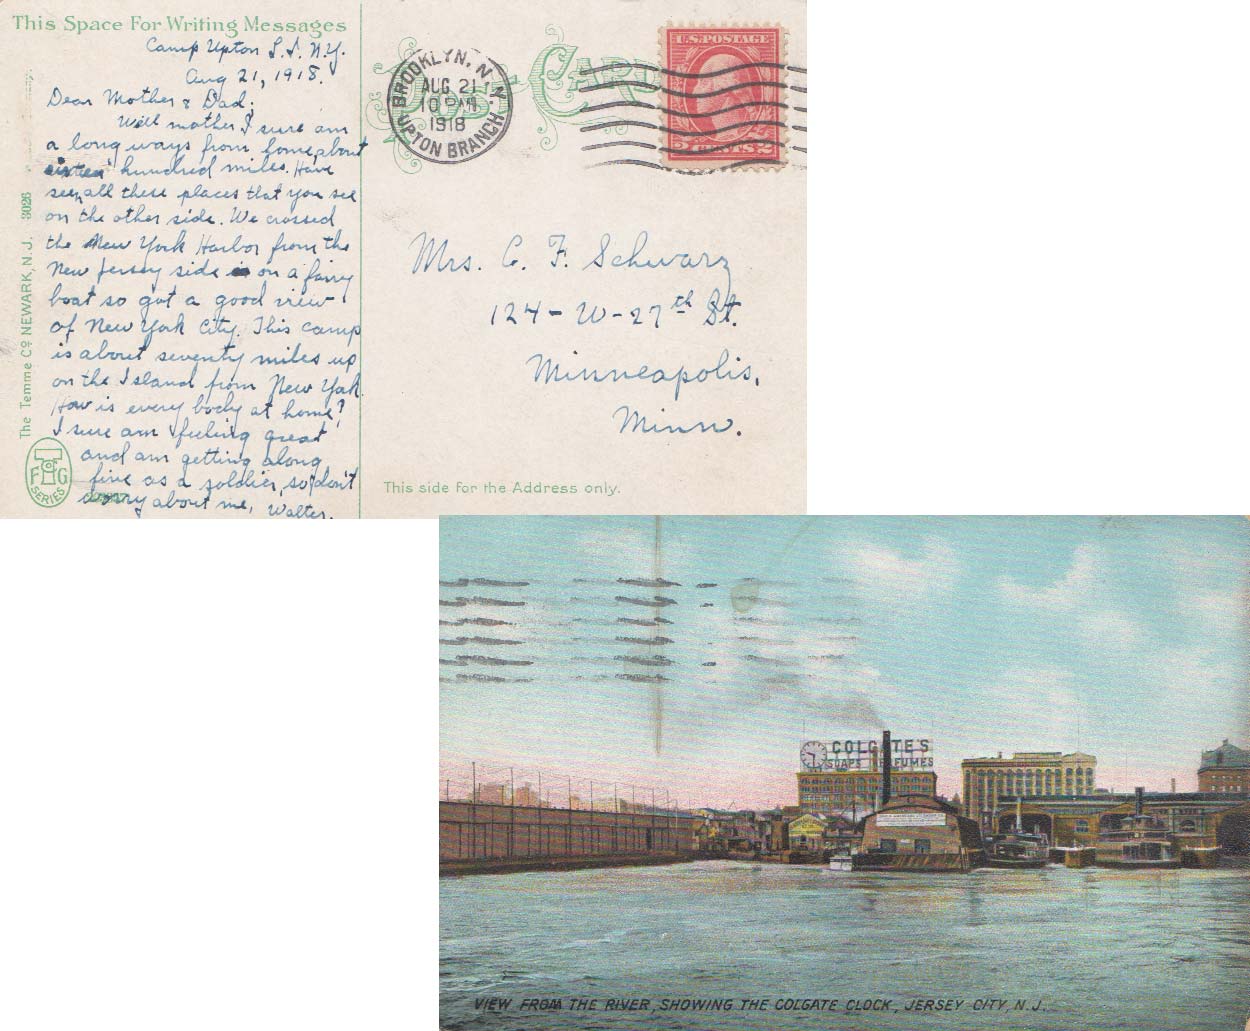 This Space For Writing Messages
Camp Upton L.I. N.Y.
Aug 21, 1918.
Dear Mother & Dad;
Well mother I sure am
a long ways from home, about
sixteen hundred miles. Have
seen all these places that you see
on the other side. We crossed
the New York Harbor from the
New Jersey side on a fairy
boat so got a good view
of New York City. This camp
is about seventy miles up
on the Island from New York.
How is every body at home?
I sure am feeling great
and am getting along
fine as a soldier, so don't
worry about me, Walter.
The Temme Co NEWARK, N.J. 3026
F T G
SERIES
POST CARD
BROOKLYN, N.Y.
AUG 21
10 PM
1918
UPTON BRANCH
U.S. POSTAGE
2 CENTS 2
Mrs. C. F. Schwarz
124 - W - 27th St.
Minneapolis,
Minn.
This side for the Address only.
COLGATE'S
SOAPS PERFUMES
VIEW FROM THE RIVER, SHOWING THE COLGATE CLOCK, JERSEY CITY, N.J.